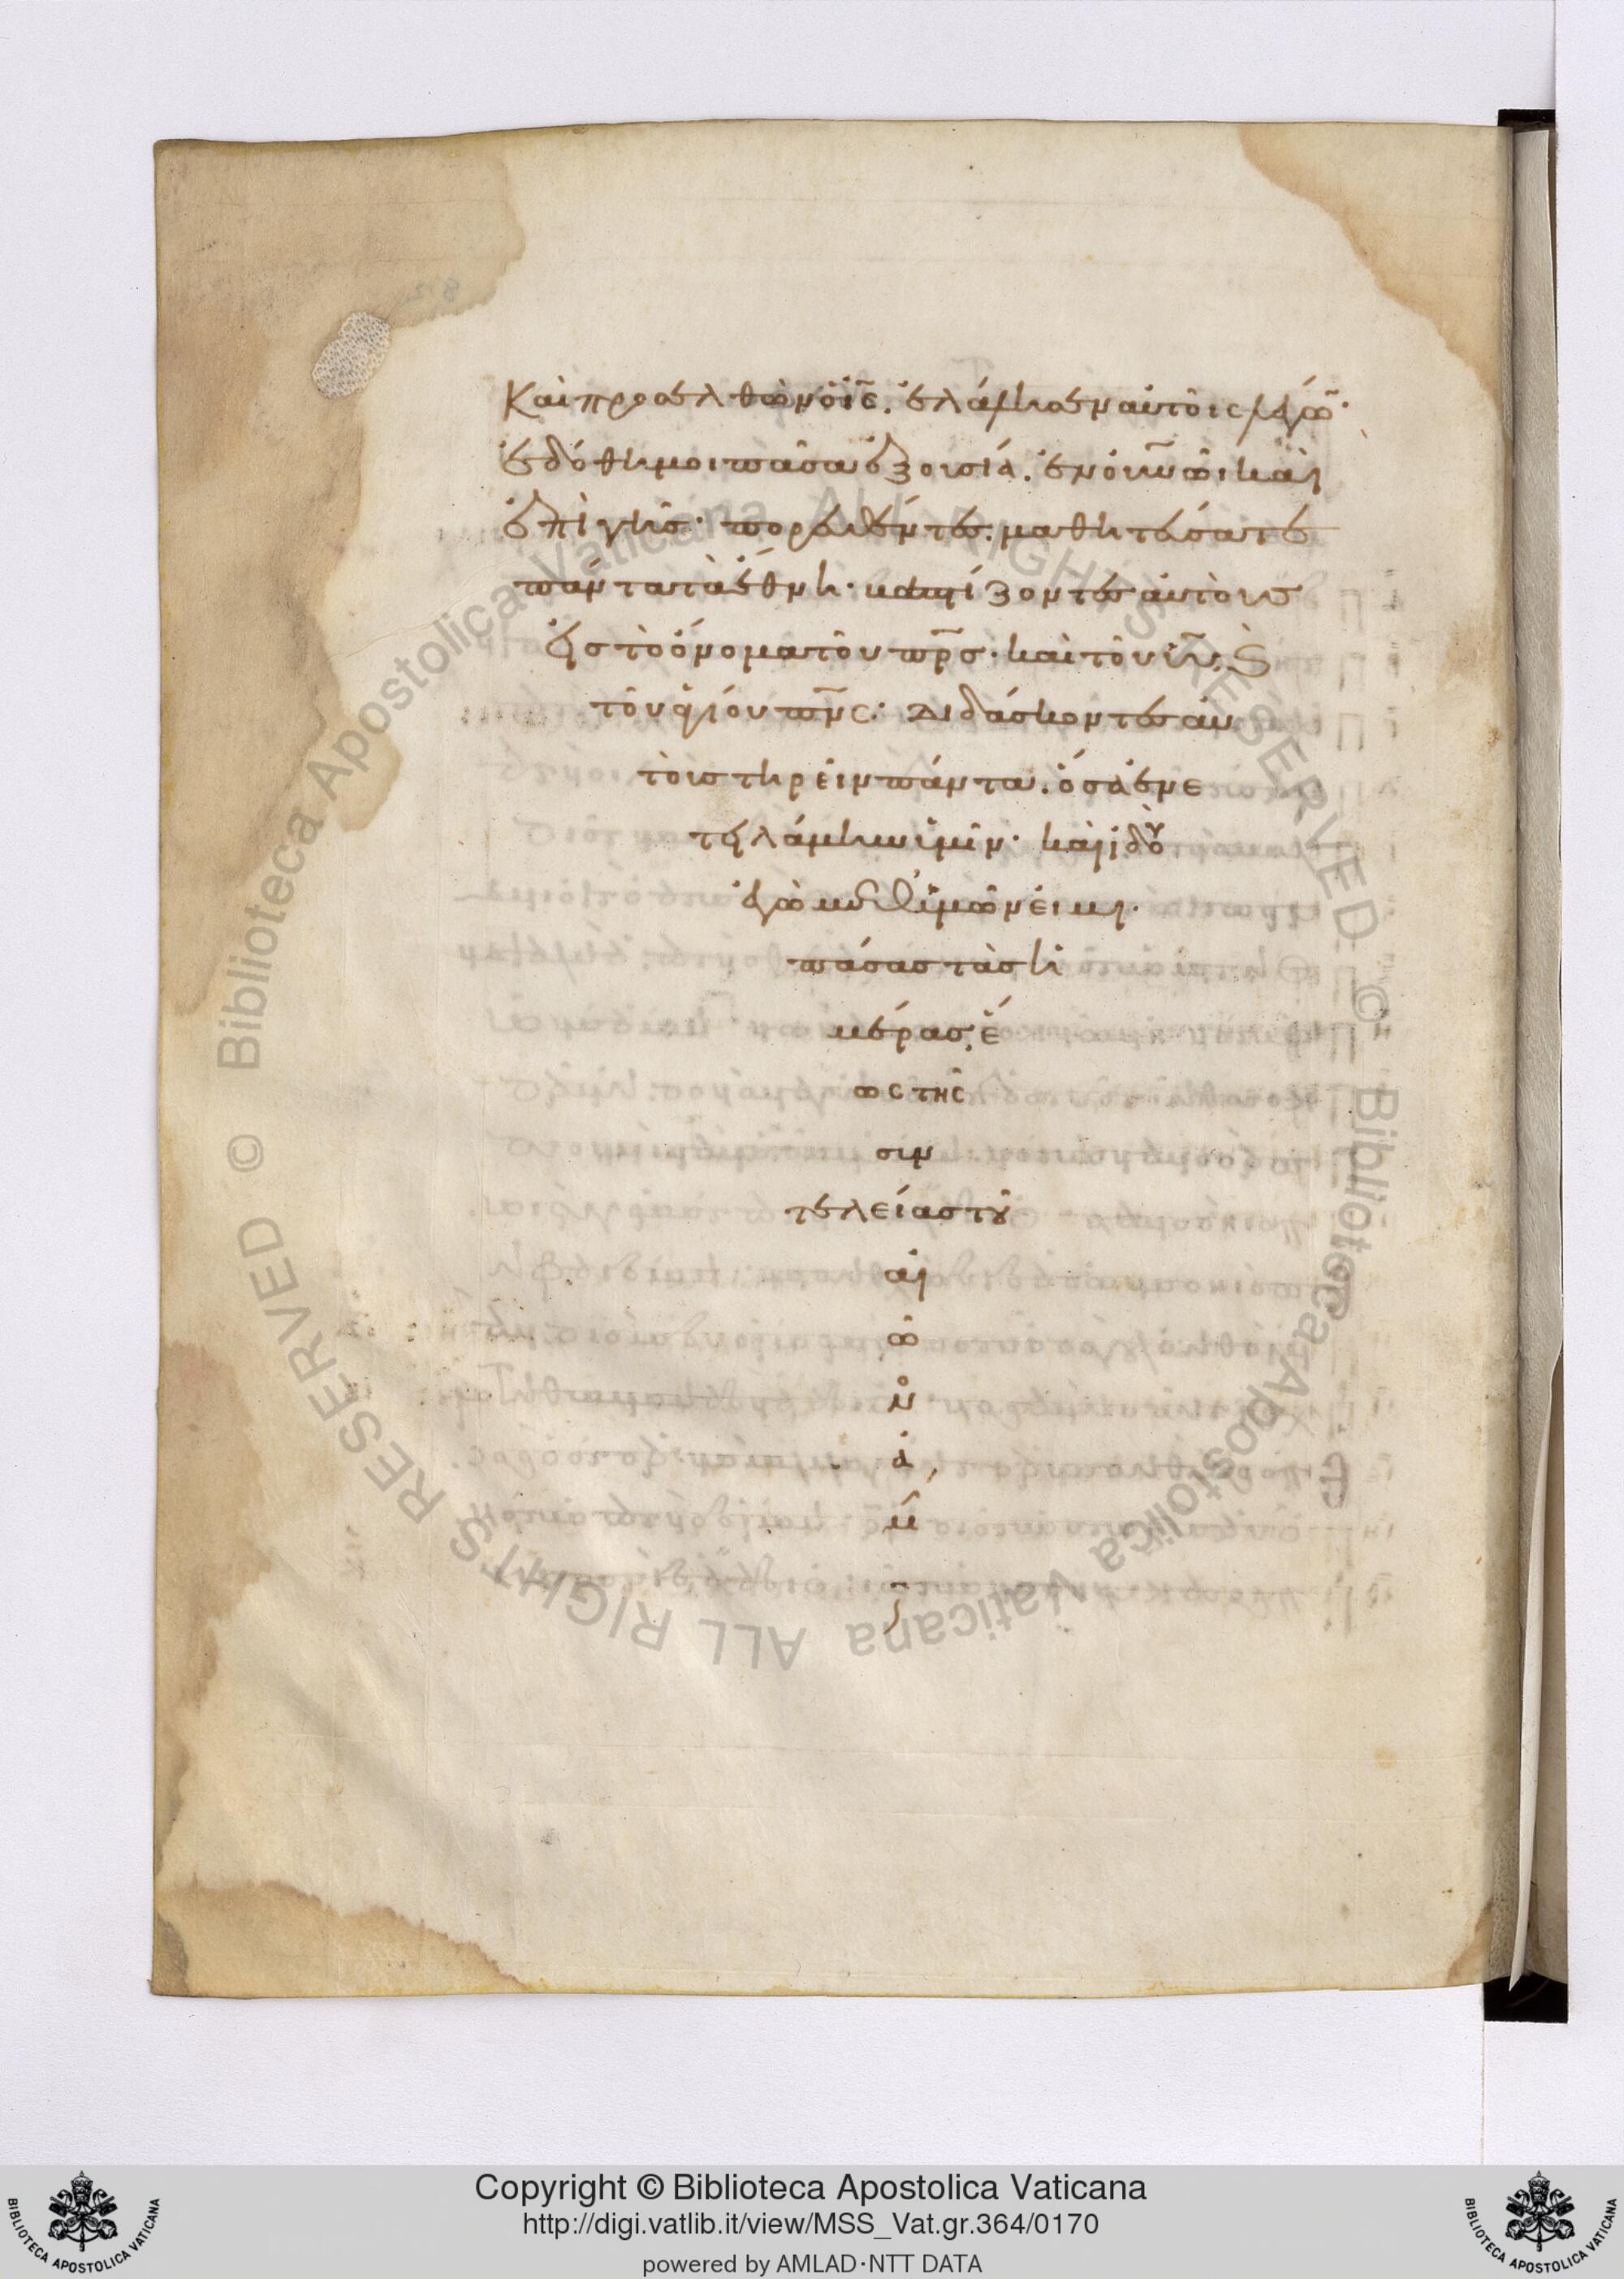 Καὶ προσελθὼν ὁ ι̅ς̅. ἐλάλησεν αὐτοῖς λέγω̅ν·
ἐδόθη μοι πᾶσα ἐξουσία. ἐν ο̅υ̅ν̅ω̅ι̅ καὶ
ἐπὶ γῆς· πορευθέντες. μαθητεύσατε
πάντα τὰ ἔθνη· βαπτίζοντες αὐτοὺς
εἰς τὸ ὄνομα τοῦ π̅ρ̅σ̅· καὶ τοῦ υ̅ι̅υ̅, ϗ
τοῦ ἁγίου π̅ν̅ς̅· διδάσκοντες αὐ
τοὺς τηρεῖν πάντα. ὅσα ἐνε
τειλάμην ὑμῖν· καὶ ἰδοὺ
ἐγὼ μεθ' ὑμῶν εἰμι·
πάσας τὰς ἡ
μέρας, ἕ
ως τῆς
συν
τελείας τοῦ
αἰ
ῶ
νο
ἀ,
μ
Copyright © Biblioteca Apostolica Vaticana
http://digi.vatlib.it/view/MSS_Vat.gr.364/0170
powered by AMLAD·NTT DATA
BIBLIOTECA APOSTOLICA VATICANA
BIBLIOTECA APOSTOLICA VATICANA
© Biblioteca Apostolica Vaticana ALL RIGHTS RESERVED © Biblioteca Apostolica Vaticana ALL RIGHTS RESERVED